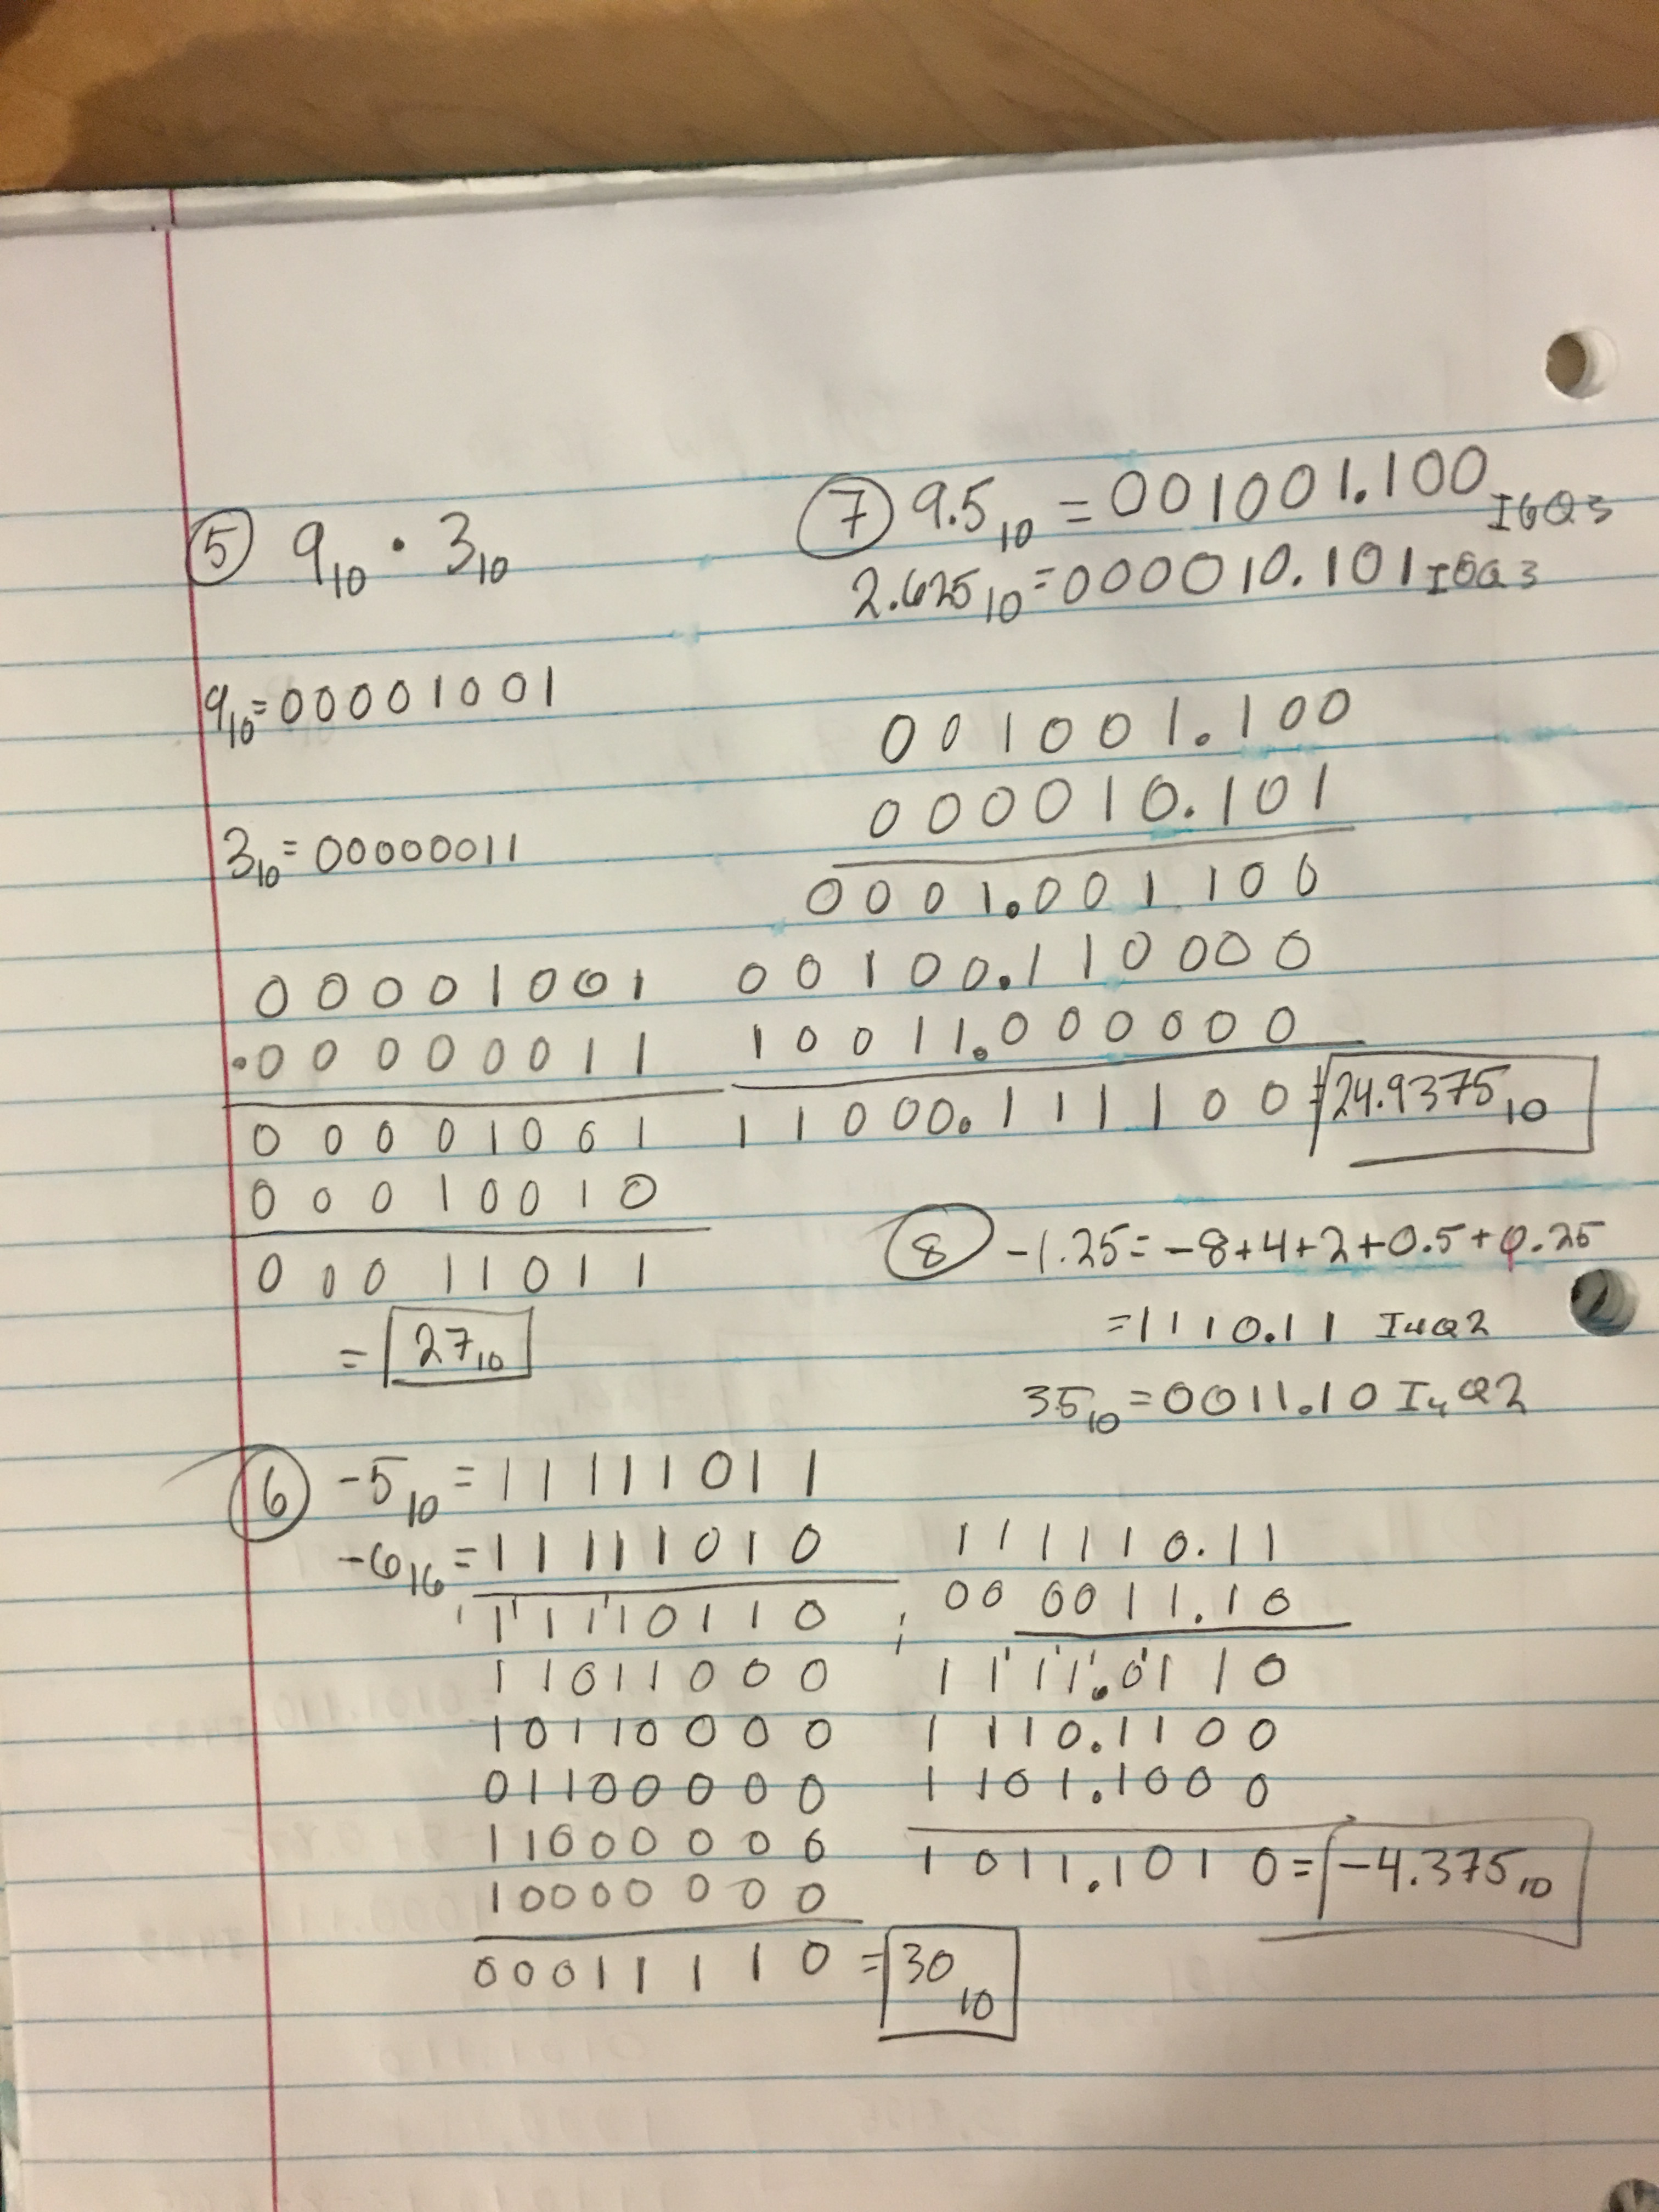 ⑤ 9₁₀ · 3₁₀
9₁₀ = 00001001
3₁₀ = 00000011
00001001
·00000011
00001001
00010010
00011011
= 27₁₀
⑥ -5₁₀ = 11111011
-6₁₆ = 11111010
11110110
11011000
10110000
01100000
11000000
10000000
00011110 = 30₁₀
⑦ 9.5₁₀ = 001001.100 I6Q3
2.625₁₀ = 000010.101 I6Q3
001001.100
000010.101
0001.001100
00100.110000
10011.000000
11000.111100 = 24.9375₁₀
⑧ -1.25 = -8+4+2+0.5+0.25
= 1110.11 I4Q2
35₁₀ = 0011.10 I4Q2
111110.11
000011.10
1111.0110
1110.1100
1101.1000
1011.1010 = -4.375₁₀